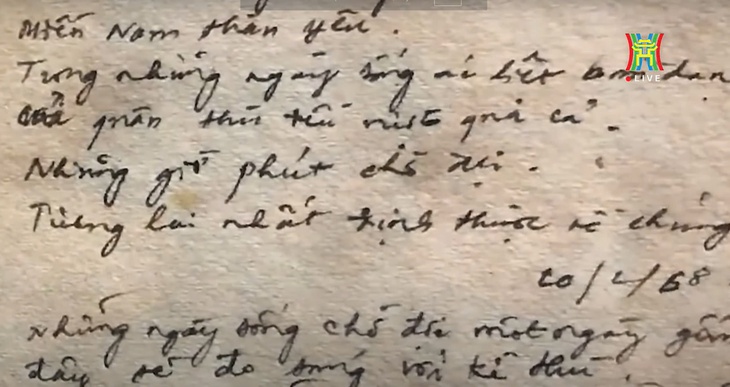 Miền Nam thân yêu.
Trong những ngày sống ác liệt bom đạn
quân thù tất qua cả.
Những giờ phút chờ đợi.
Tương lai nhất định thuộc về chúng
20/2/68
Những ngày sống chờ đợi một ngày gần
đây sẽ đo súng với kẻ thù.
LIVE